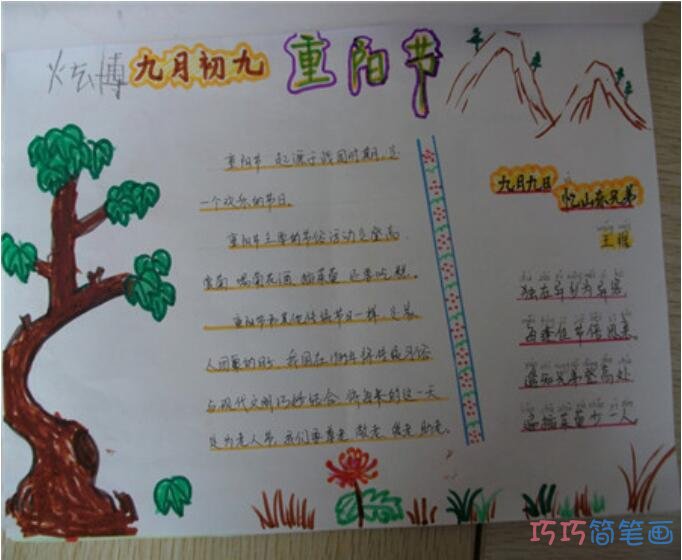 炫博
九月初九
重阳节
重阳节 起源于战国时期,是
一个欢乐的节日.
重阳节主要的节俗活动是登高
赏菊 喝菊花酒 插茱萸 还要吃糕.
重阳节和其他传统节日一样,是家
人团圆的日子.我国在1989年将传统习俗
与现代文明巧妙结合.将每年的这一天
定为老人节.我们要尊老 敬老 爱老 助老。
九月九日
忆山东兄弟
王维
独在异乡为异客
每逢佳节倍思亲。
遥知兄弟登高处
遍插茱萸少一人
巧巧简笔画